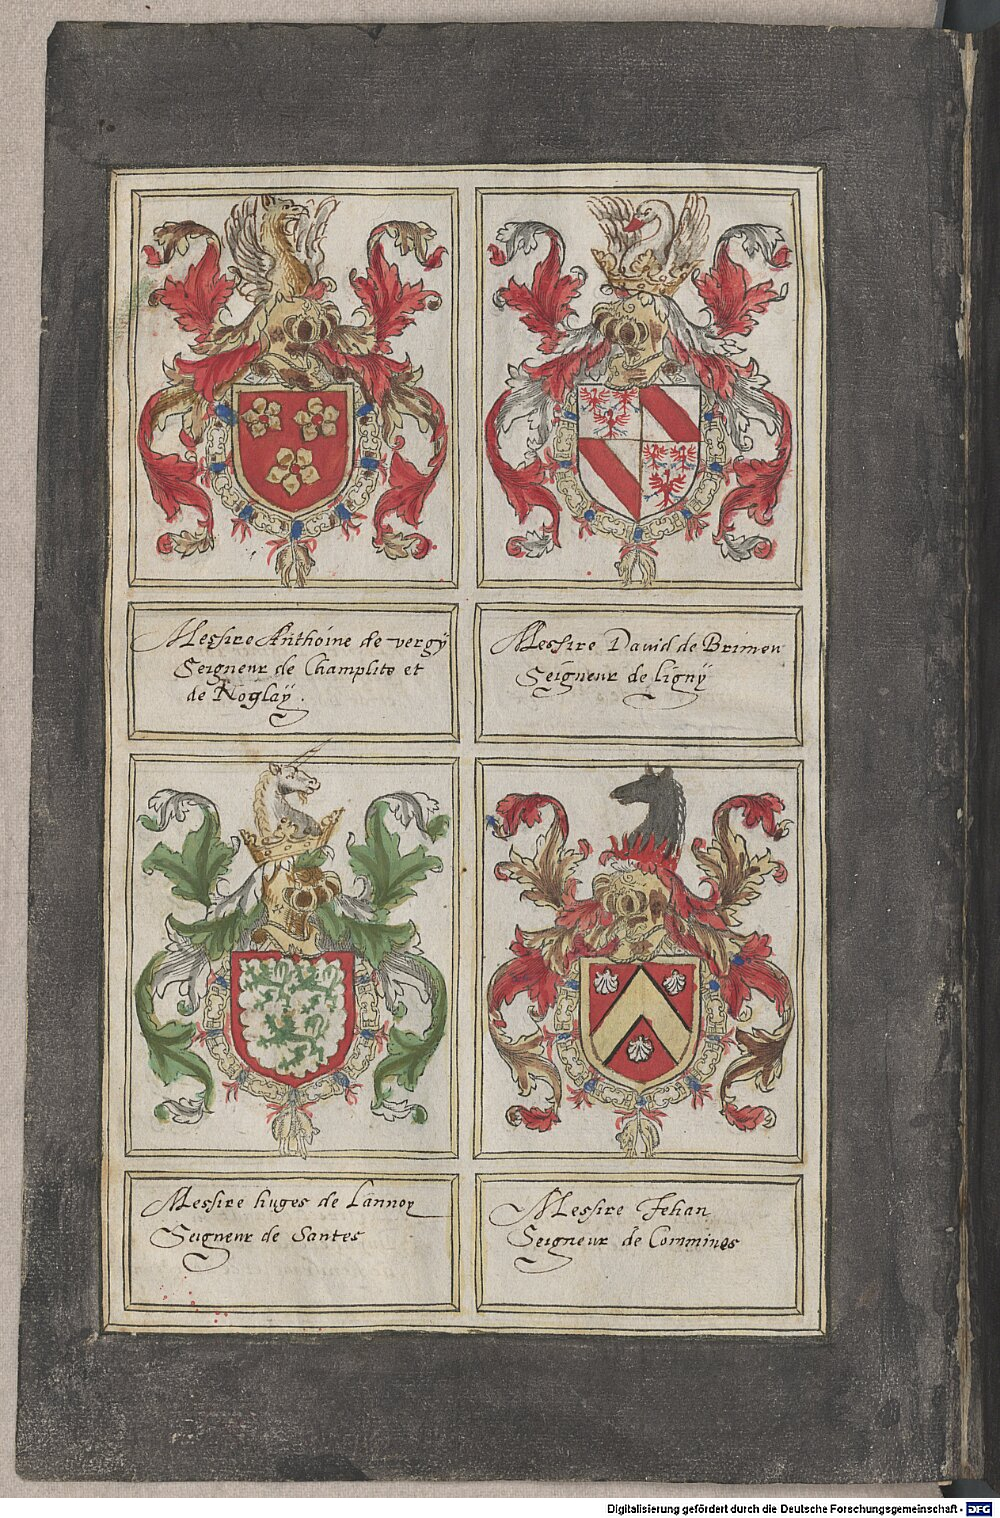 Messire Anthoine de vergÿ
Seigneur de Champlite et
de Roglaÿ.
Messire David de Brimeu
Seigneur de lignÿ
Messire huges de Lannoy
Seigneur de Santes
Messire Jehan
Seigneur de Commines
Digitalisierung gefördert durch die Deutsche Forschungsgemeinschaft - DFG